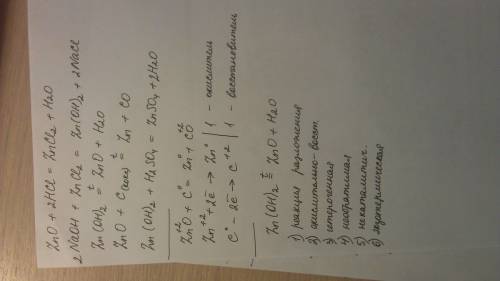 ZnO + 2HCl = ZnCl₂ + H₂O
2NaOH + ZnCl₂ = Zn(OH)₂ + 2NaCl
Zn(OH)₂ =ᵗ ZnO + H₂O
ZnO + C =ᵗ Zn + CO
Zn(OH)₂ + H₂SO₄ = ZnSO₄ + 2H₂O
Zn⁺²O + C⁰ = Zn⁰ + C⁺²O
Zn⁺² + 2ē → Zn⁰ | 1 – окислитель
C⁰ – 2ē → C⁺² | 1 – восстановитель
Zn(OH)₂ =ᵗ ZnO + H₂O
1) реакция разложения
2) окислительно-восст.
3) гетерогенная
4) необратимая
5) некаталитич.
6) эндотермическая